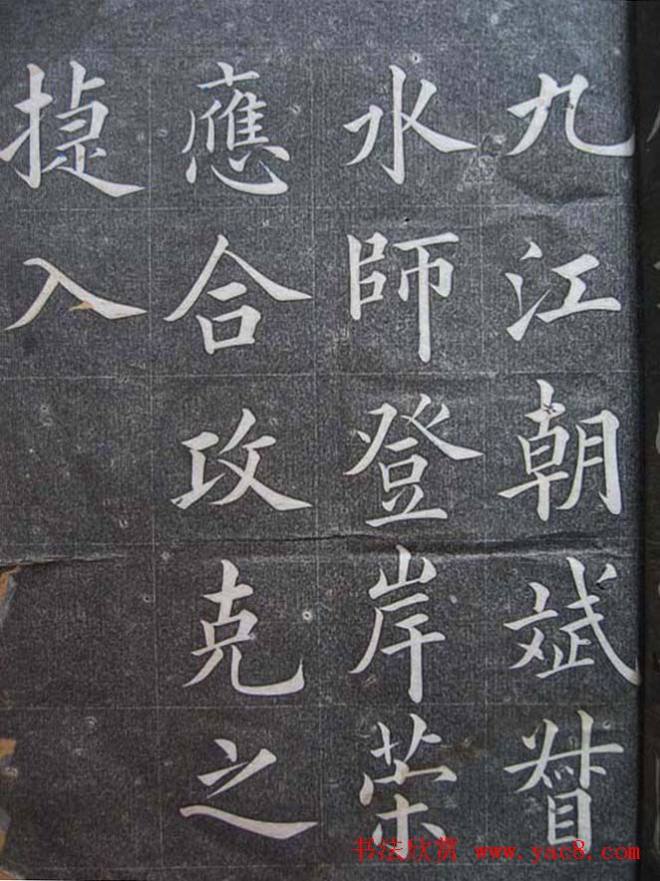 九江朝斌督
水師登岸策
應合攻克之
捷入
书法欣赏 www.yac8.com